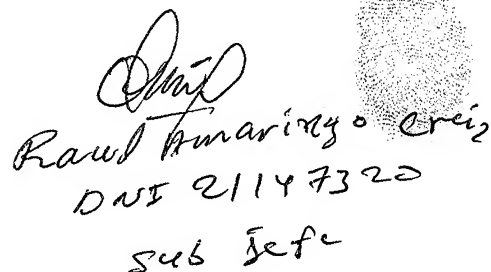 Raul Amaringo Creiz
DNI 21147320
sub Jefe